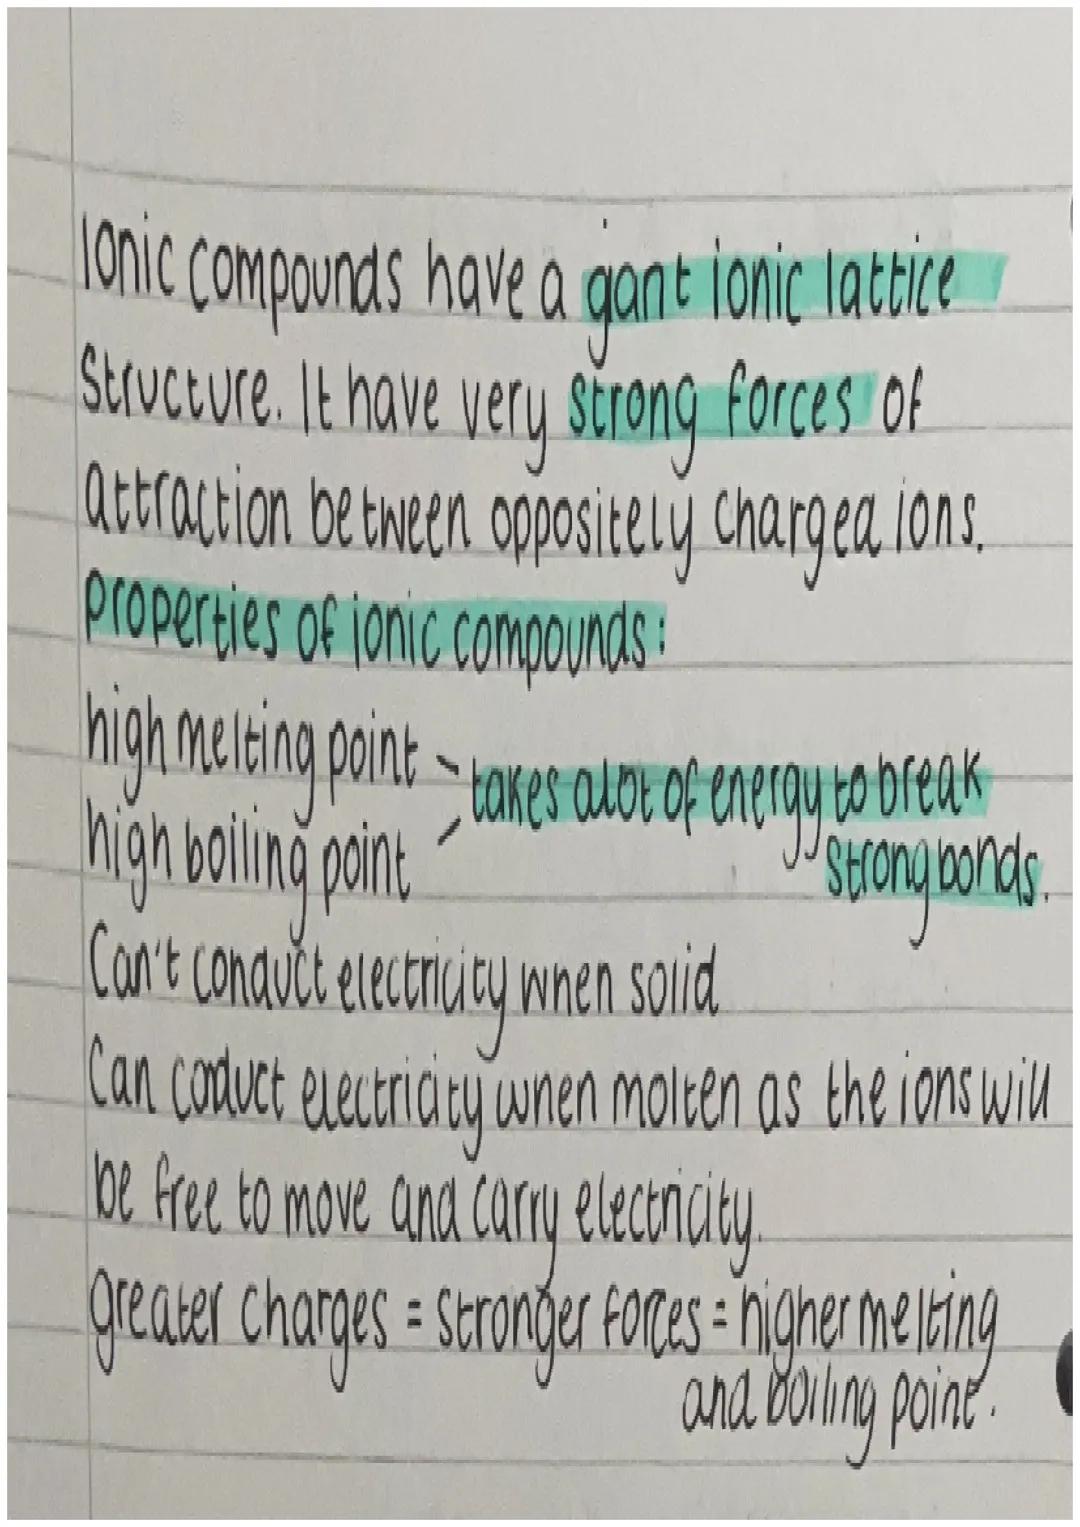 Ionic compounds have a gant ionic lattice
Structure. It have very strong forces of
attraction between oppositely charged ions.
properties of ionic compounds:
high melting point > takes alot of energy to break
high boiling point strong bonds.
Can't conduct electricity when solid
Can coduct electricity when molten as the ions will
be free to move and carry electricity.
greater charges = stronger forces = higher melting
and boiling point.